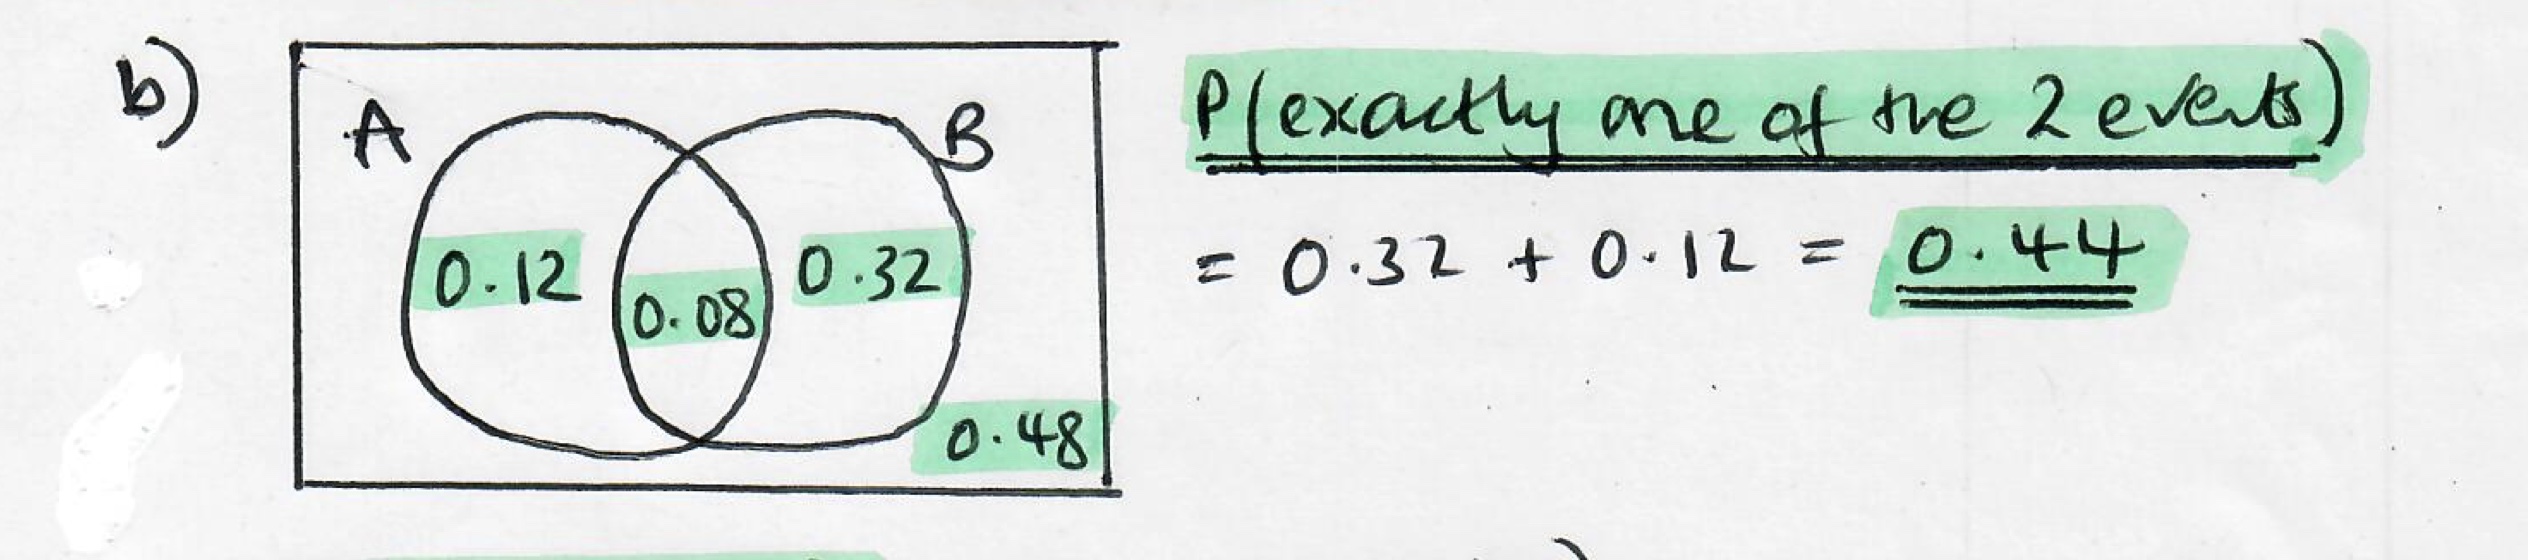 b)
A
B
0.12
0.08
0.32
0.48
P(exactly one of the 2 events)
= 0.32 + 0.12 = 0.44